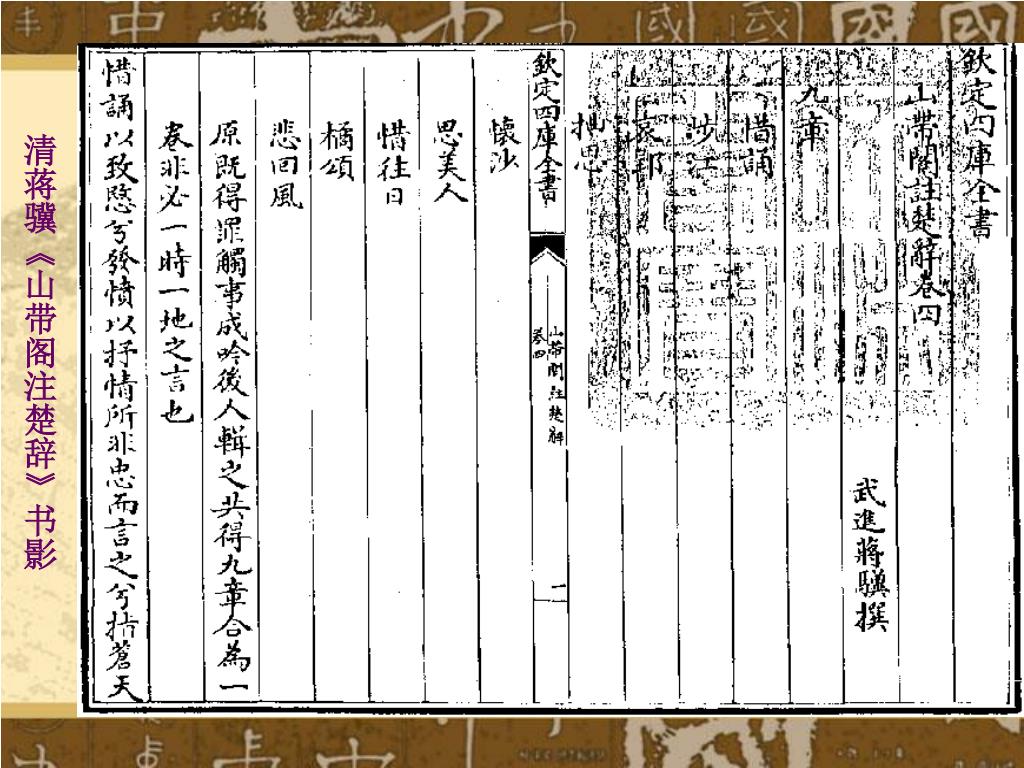 欽定四庫全書
山帶閣註楚辭卷四
武進蔣驥撰
九章
惜誦
涉江
哀郢
抽思
欽定四庫全書
山帶閣註楚辭
卷四
一
懷沙
思美人
惜往日
橘頌
悲回風
原既得罪觸事成吟後人輯之共得九章合為一
卷非必一時一地之言也
惜誦以致愍兮發憤以抒情所非忠而言之兮指蒼天
清蒋骥《山带阁注楚辞》书影